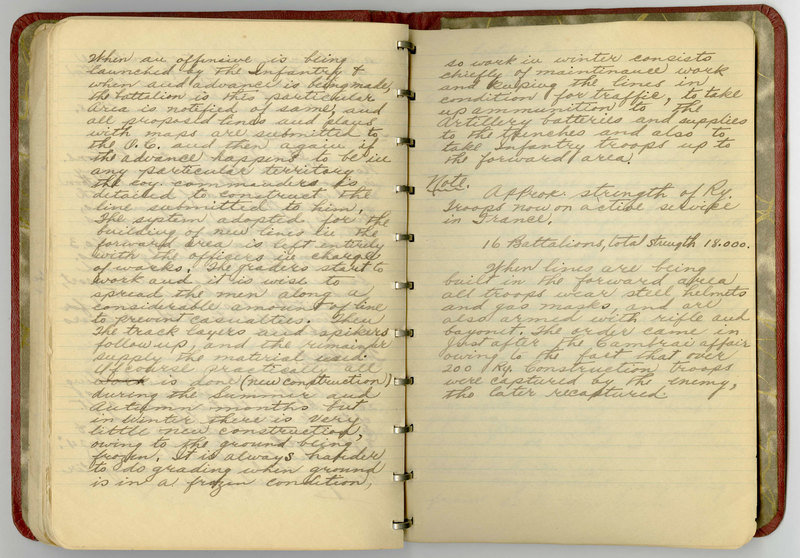 When an offensive is being
launched by the Infantry &
when and advance is being made,
the battalion in this particular
area is notified of same, and
all proposed lines and plans
with maps are submitted to
the O.C. and then again if
the advance happens to be in
any particular territory
the coy. commanders is
detailed to construct the
line submitted to him.
The system adopted for the
building of new lines in the
forward area is left entirely
with the officers in charge
of works. The graders start to
work and it is wise to
spread the men along a
considerable amount of line
to prevent casualties. Then
the track layers and spikers
follow up, and the remainder
supply the material used.
Of course practically all
work is done (new construction)
during the summer and
Autumn months but
in winter there is very
little new construction,
owing to the ground being
frozen. It is always harder
to do grading when ground
is in a frozen condition,
so work in winter consists
chiefly of maintenance work
and keeping the lines in
condition for traffic, to take
up ammunition to the
Artillery batteries and supplies
to the trenches and also to
take Infantry troops up to
the forward area.
Note.
Approx. strength of Ry.
Troops now on active service
in France.
16 Battalions, total strength 18.000.
When lines are being
built in the forward area
all troops wear steel helmets
and gas masks and are
also armed with rifle and
bayonet. The order came in
just after the Cambrai affair
owing to the fact that over
200 Ry. Construction troops
were captured by the enemy,
tho later recaptured